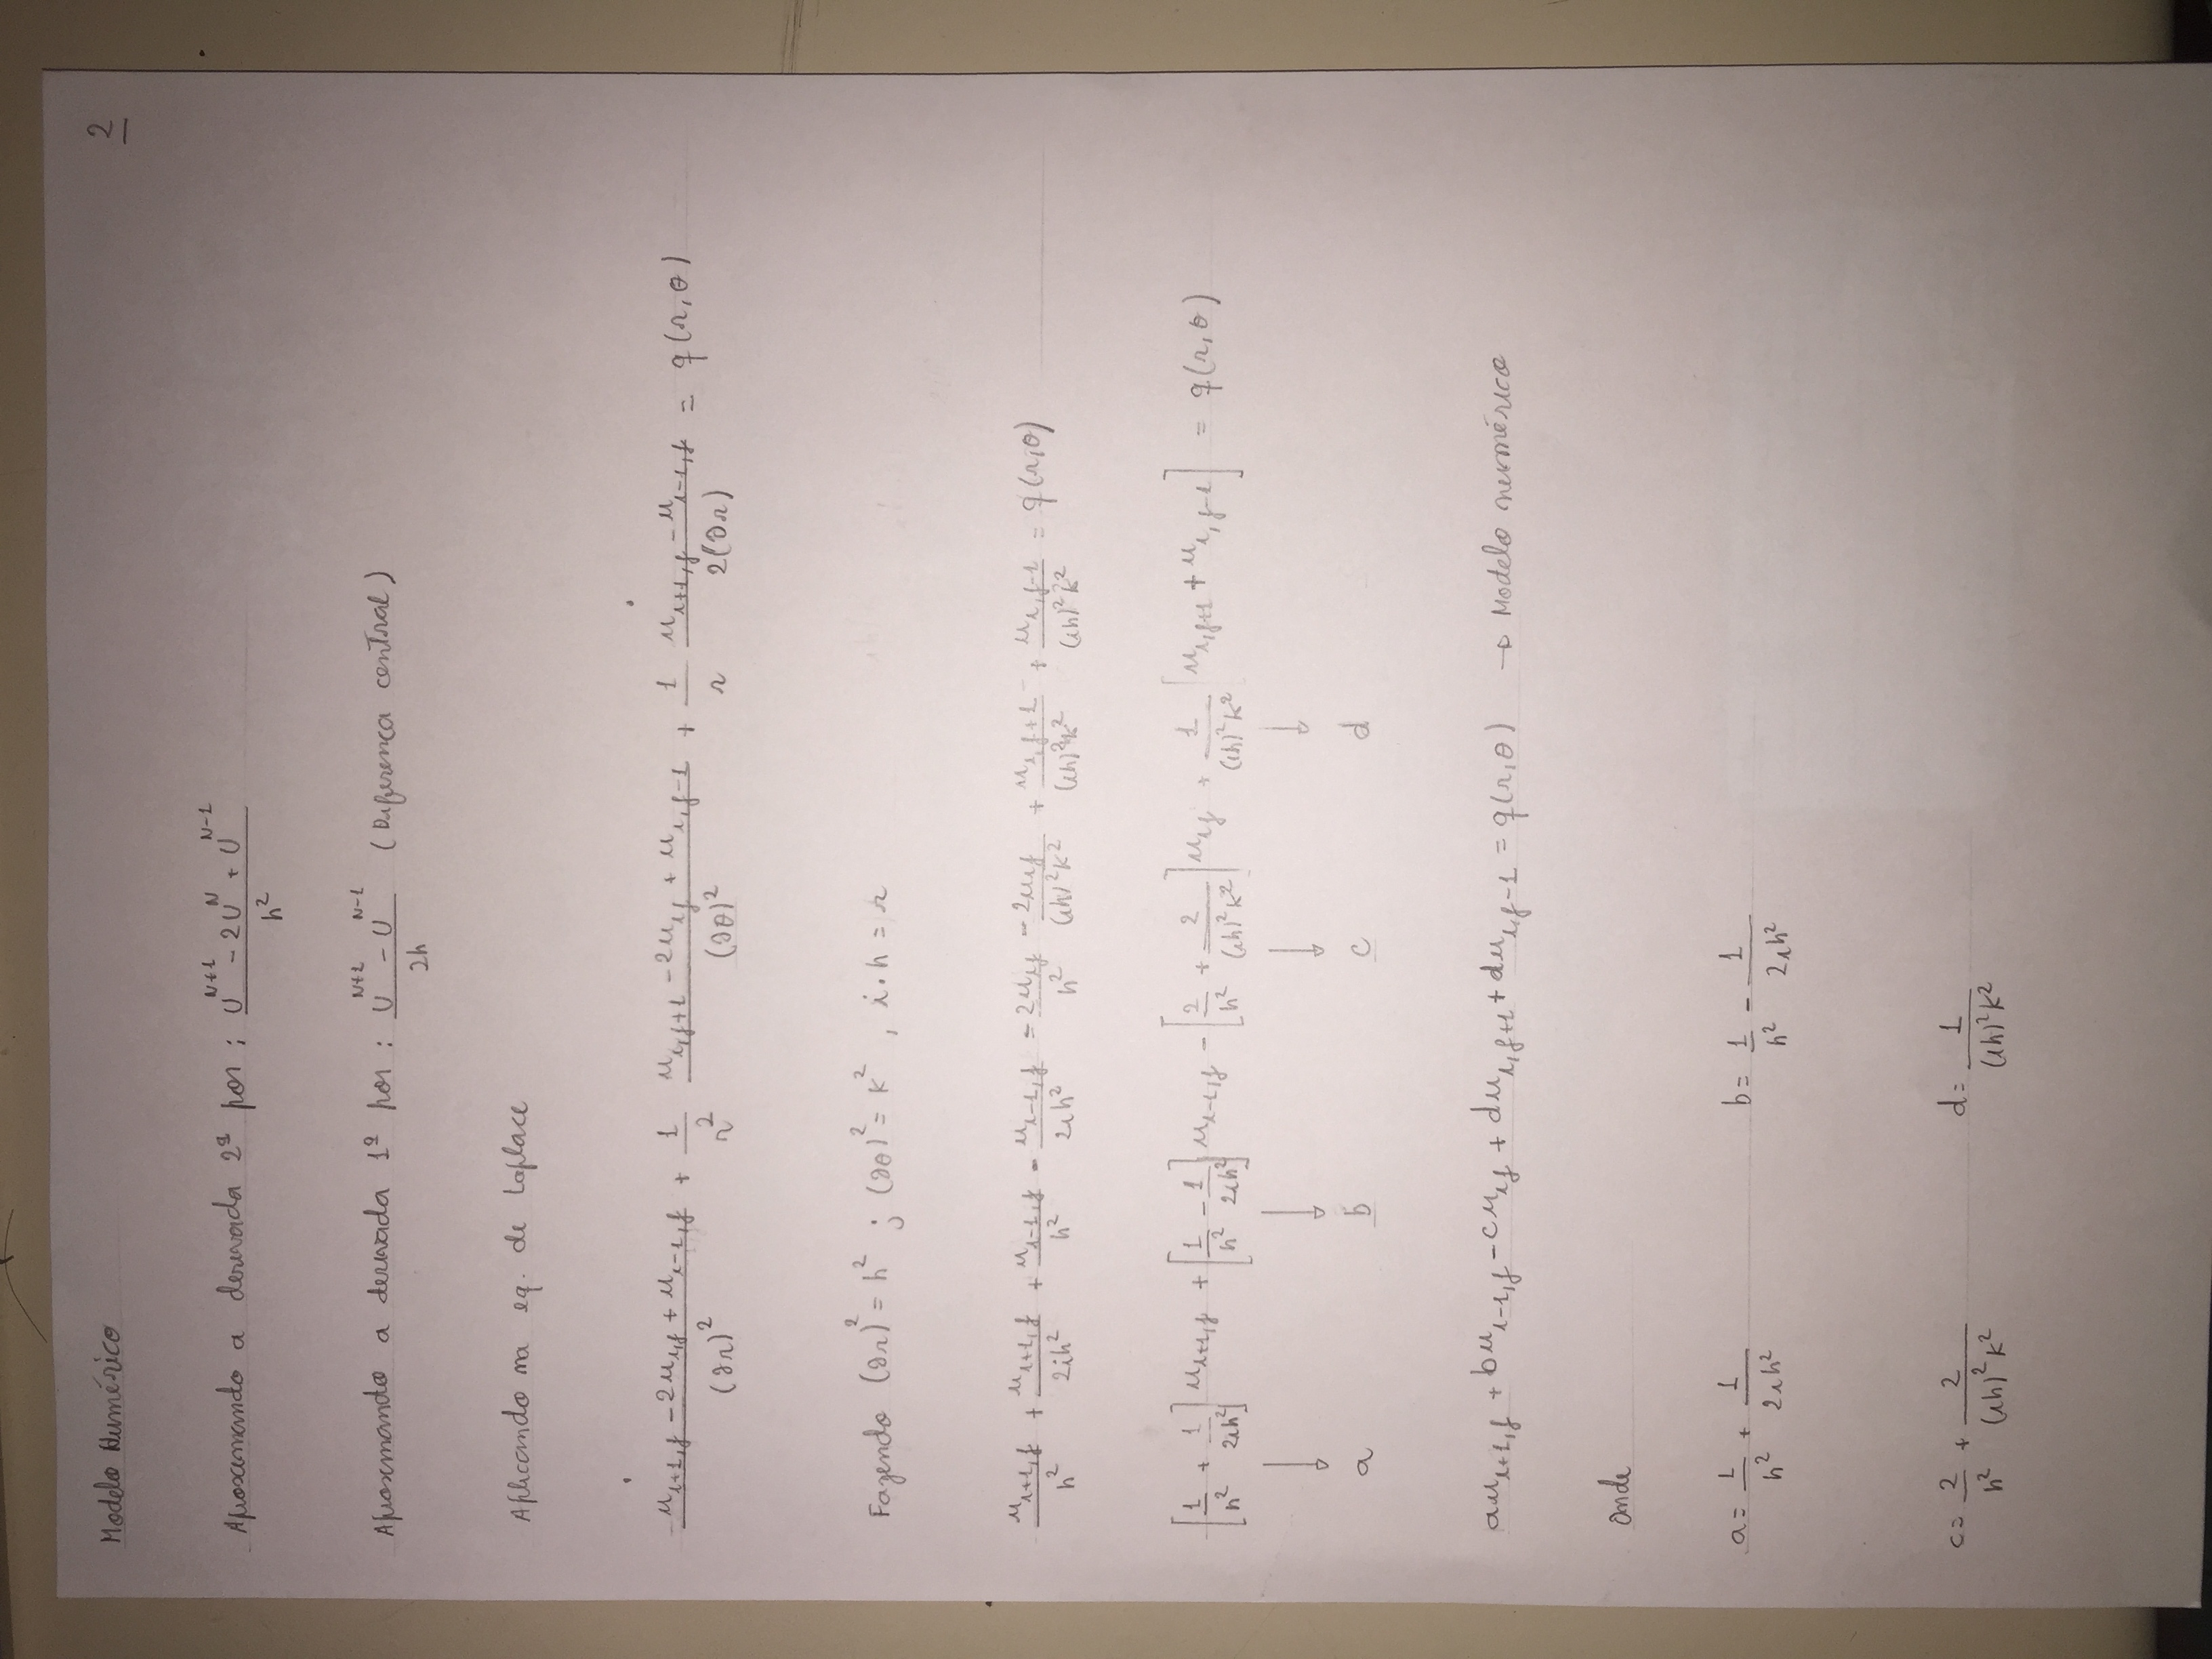 Modelo Numérico 2
Aproximando a derivada 2ª por: (U^{N+1} - 2U^{N} + U^{N-1}) / h²
Aproximando a derivada 1ª por: (U^{N+1} - U^{N-1}) / 2h (Diferença central)
Aplicando na eq. de Laplace
(u_{i+1,j} - 2u_{i,j} + u_{i-1,j}) / (∂r)² + 1/r² (u_{i,j+1} - 2u_{ij} + u_{i,j-1}) / (∂θ)² + 1/r (u_{i+1,j} - u_{i-1,j}) / 2(∂r) = q(r,θ)
Fazendo (∂r)² = h² ; (∂θ)² = k² , i·h = r
u_{i+1,j}/h² + u_{i+1,j}/2ih² + u_{i-1,j}/h² - u_{i-1,j}/2ih² - 2u_{ij}/h² - 2u_{ij}/(ih)²k² + u_{i,j+1}/(ih)²k² + u_{i,j-1}/(ih)²k² = q(r,θ)
[1/h² + 1/2ih²] u_{i+1,j} + [1/h² - 1/2ih²] u_{i-1,j} - [2/h² + 2/(ih)²k²] u_{ij} + 1/(ih)²k² [u_{i,j+1} + u_{i,j-1}] = q(r,θ)
↓ ↓ ↓ ↓
a b c d
au_{i+1,j} + bu_{i-1,j} - cu_{ij} + du_{i,j+1} + du_{i,j-1} = q(r,θ) → Modelo numérico
Onde
a = 1/h² + 1/2ih² b = 1/h² - 1/2ih²
c = 2/h² + 2/(ih)²k² d = 1/(ih)²k²